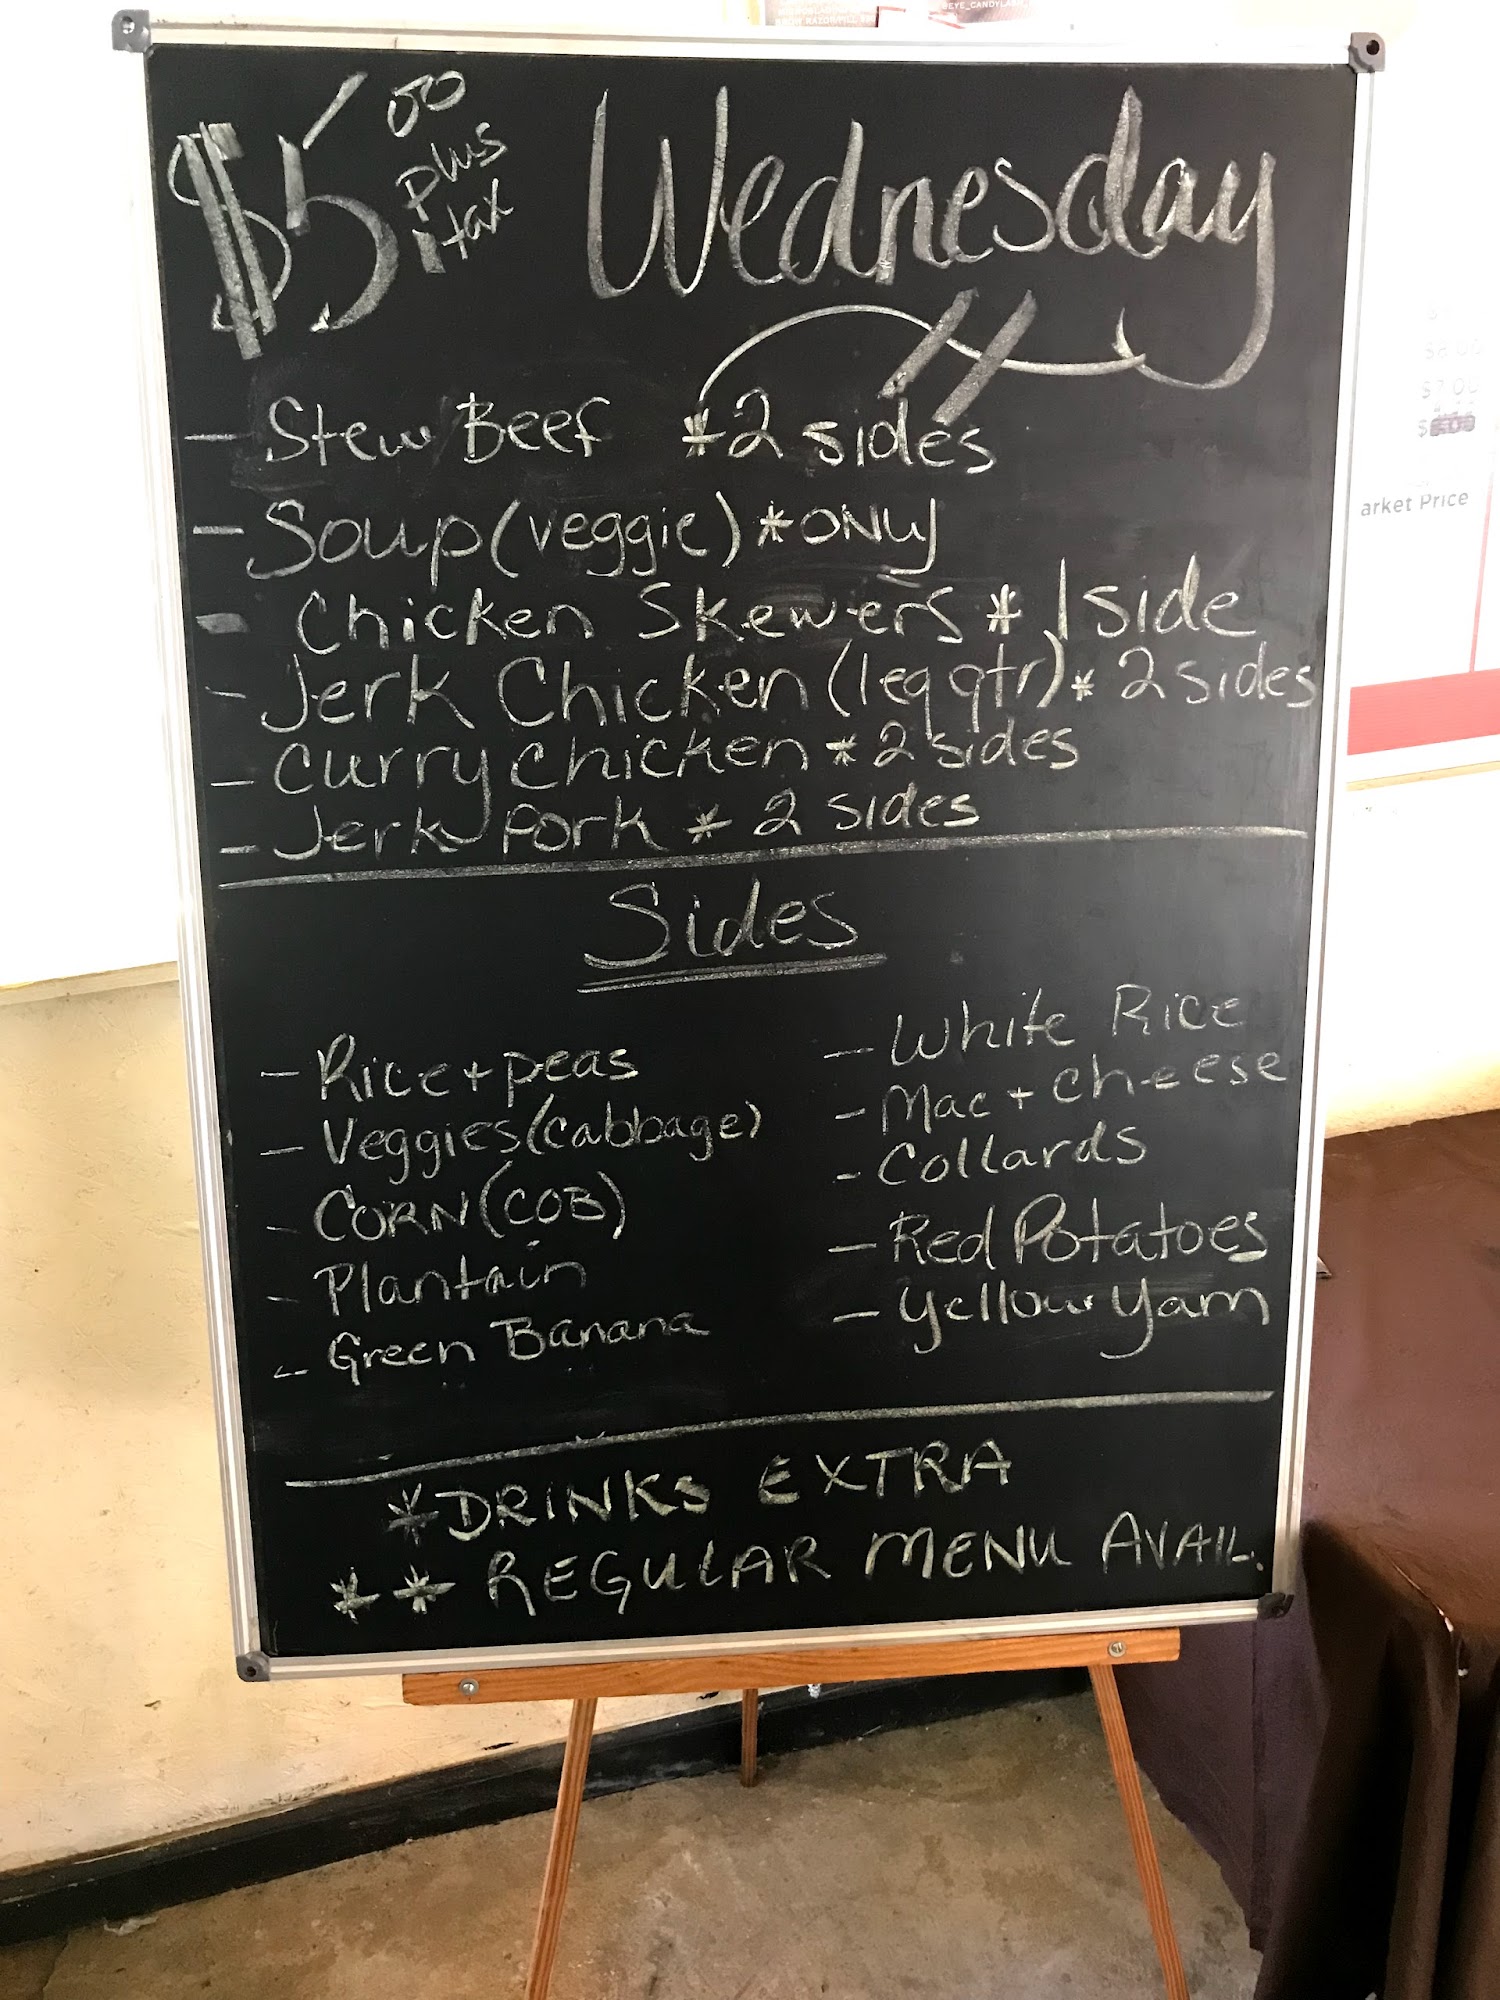 EYE_CANDYLASH
$5 00 plus tax
Wednesday
- Stew Beef *2 sides
- Soup (veggie) *ONLY
- Chicken Skewers * 1 side
- Jerk Chicken (leg qtr) * 2 sides
- Curry Chicken * 2 sides
- Jerk Pork * 2 sides
Sides
- Rice + peas
- Veggies (cabbage)
- CORN (COB)
- Plantain
- Green Banana
- White Rice
- Mac + cheese
- Collards
- Red Potatoes
- Yellow Yam
*DRINKS EXTRA
** REGULAR MENU AVAIL.
$8.00
$7.00
arket Price